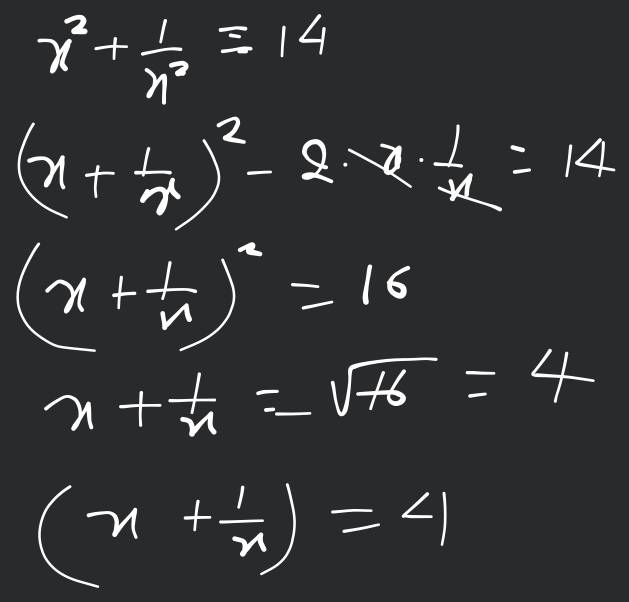 x² + 1/x² = 14
(x + 1/x)² - 2 · x · 1/x = 14
(x + 1/x)² = 16
x + 1/x = √16 = 4
(x + 1/x) = 4